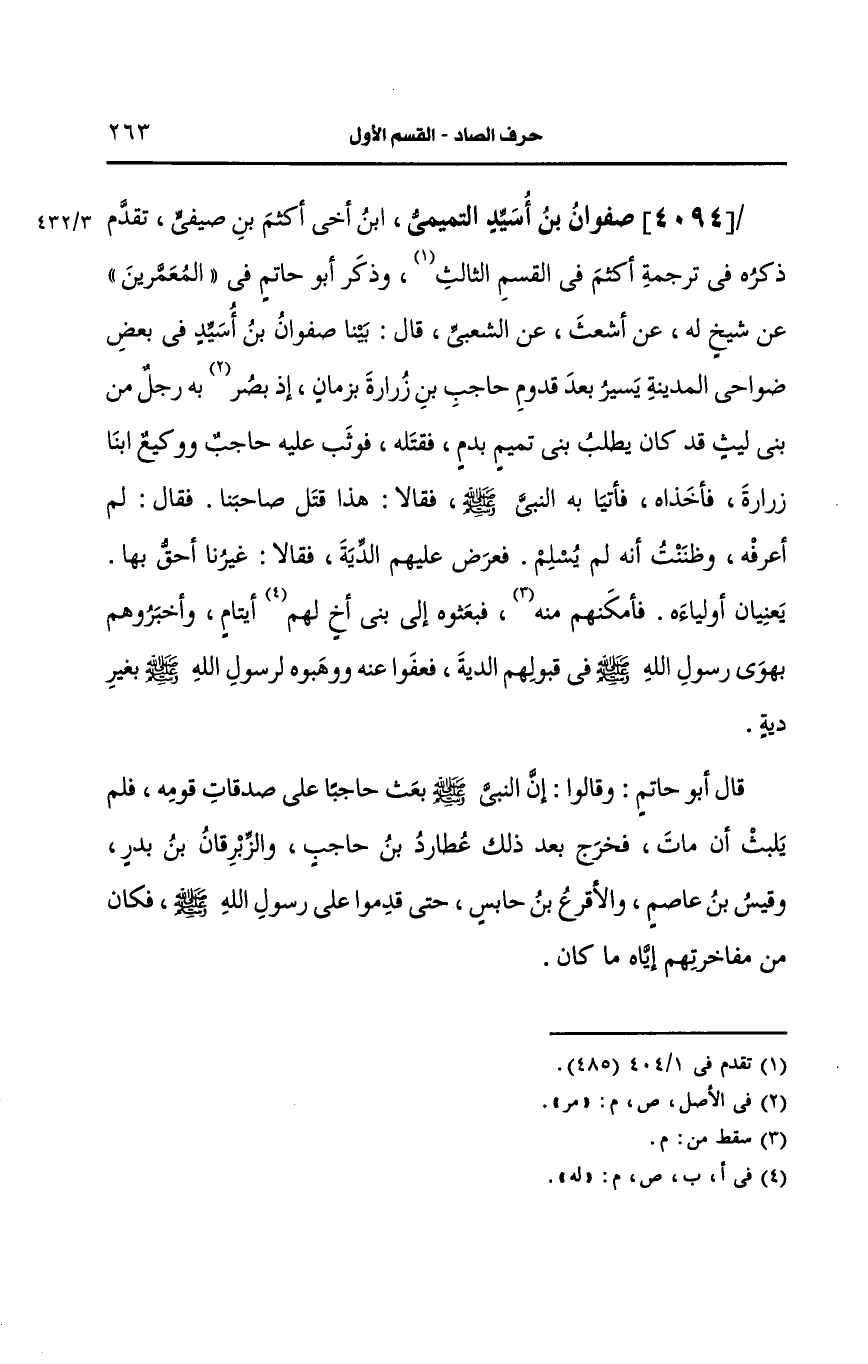 حرف الصاد - القسم الأول ٢٦٣
/[٤٠٩٤] صفوانُ بنُ أُسَيِّدٍ التميميُّ ، ابنُ أخى أكثمَ بنِ صيفىٍّ ، تقدَّم ٤٣٢/٣
ذكرُه فى ترجمةِ أكثمَ فى القسمِ الثالثِ(١) ، وذكَر أبو حاتمٍ فى « المُعَمَّرينَ »
عن شيخٍ له ، عن أشعثَ ، عن الشعبىِّ ، قال : بَيْنا صفوانُ بنُ أُسَيِّدٍ فى بعضِ
ضواحى المدينةِ يَسيرُ بعدَ قدومِ حاجبِ بنِ زُرارةَ بزمانٍ ، إذ بصُر(٢) به رجلٌ من
بنى ليثٍ قد كان يطلبُ بنى تميمٍ بدمٍ ، فقتَله ، فوثَب عليه حاجبٌ ووكيعٌ ابنَا
زرارةَ ، فأخَذاه ، فأتيَا به النبىَّ ﷺ ، فقالا : هذا قتَل صاحبَنا . فقال : لم
أعرفْه ، وظنَنْتُ أنه لم يُسْلِمْ . فعرَض عليهم الدِّيَةَ ، فقالا : غيرُنا أحقُّ بها .
يَعنِيان أولياءَه . فأمكَنهم منه(٣) ، فبعَثوه إلى بنى أخٍ لهم(٤) أيتامٍ ، وأخبَرُوهم
بهوَى رسولِ اللهِ ﷺ فى قبولِهم الديةَ ، فعفَوا عنه ووهَبوه لرسولِ اللهِ ﷺ بغيرِ
ديةٍ .
قال أبو حاتمٍ : وقالوا : إنَّ النبىَّ ﷺ بعَث حاجبًا على صدقاتِ قومِه ، فلم
يَلبثْ أن ماتَ ، فخرَج بعد ذلك عُطاردُ بنُ حاجبٍ ، والزِّبْرِقانُ بنُ بدرٍ ،
وقيسُ بنُ عاصمٍ ، والأقرعُ بنُ حابسٍ ، حتى قدِموا على رسولِ اللهِ ﷺ ، فكان
من مفاخرتِهم إيَّاه ما كان .
(١) تقدم فى ٤٠٤/١ (٤٨٥).
(٢) فى الأصل ، ص ، م : «مر».
(٣) سقط من : م .
(٤) فى أ ، ب ، ص ، م : «له».